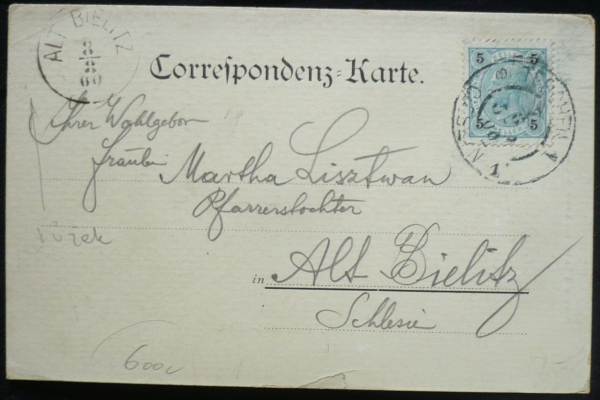 ALT BIELITZ
Correspondenz-Karte.
5 5
5 5
Ihrer Wohlgebor
Fräulein
Martha Lisztwan
Pfarrerstochter
in Alt Bielitz
Schlesien
1
600